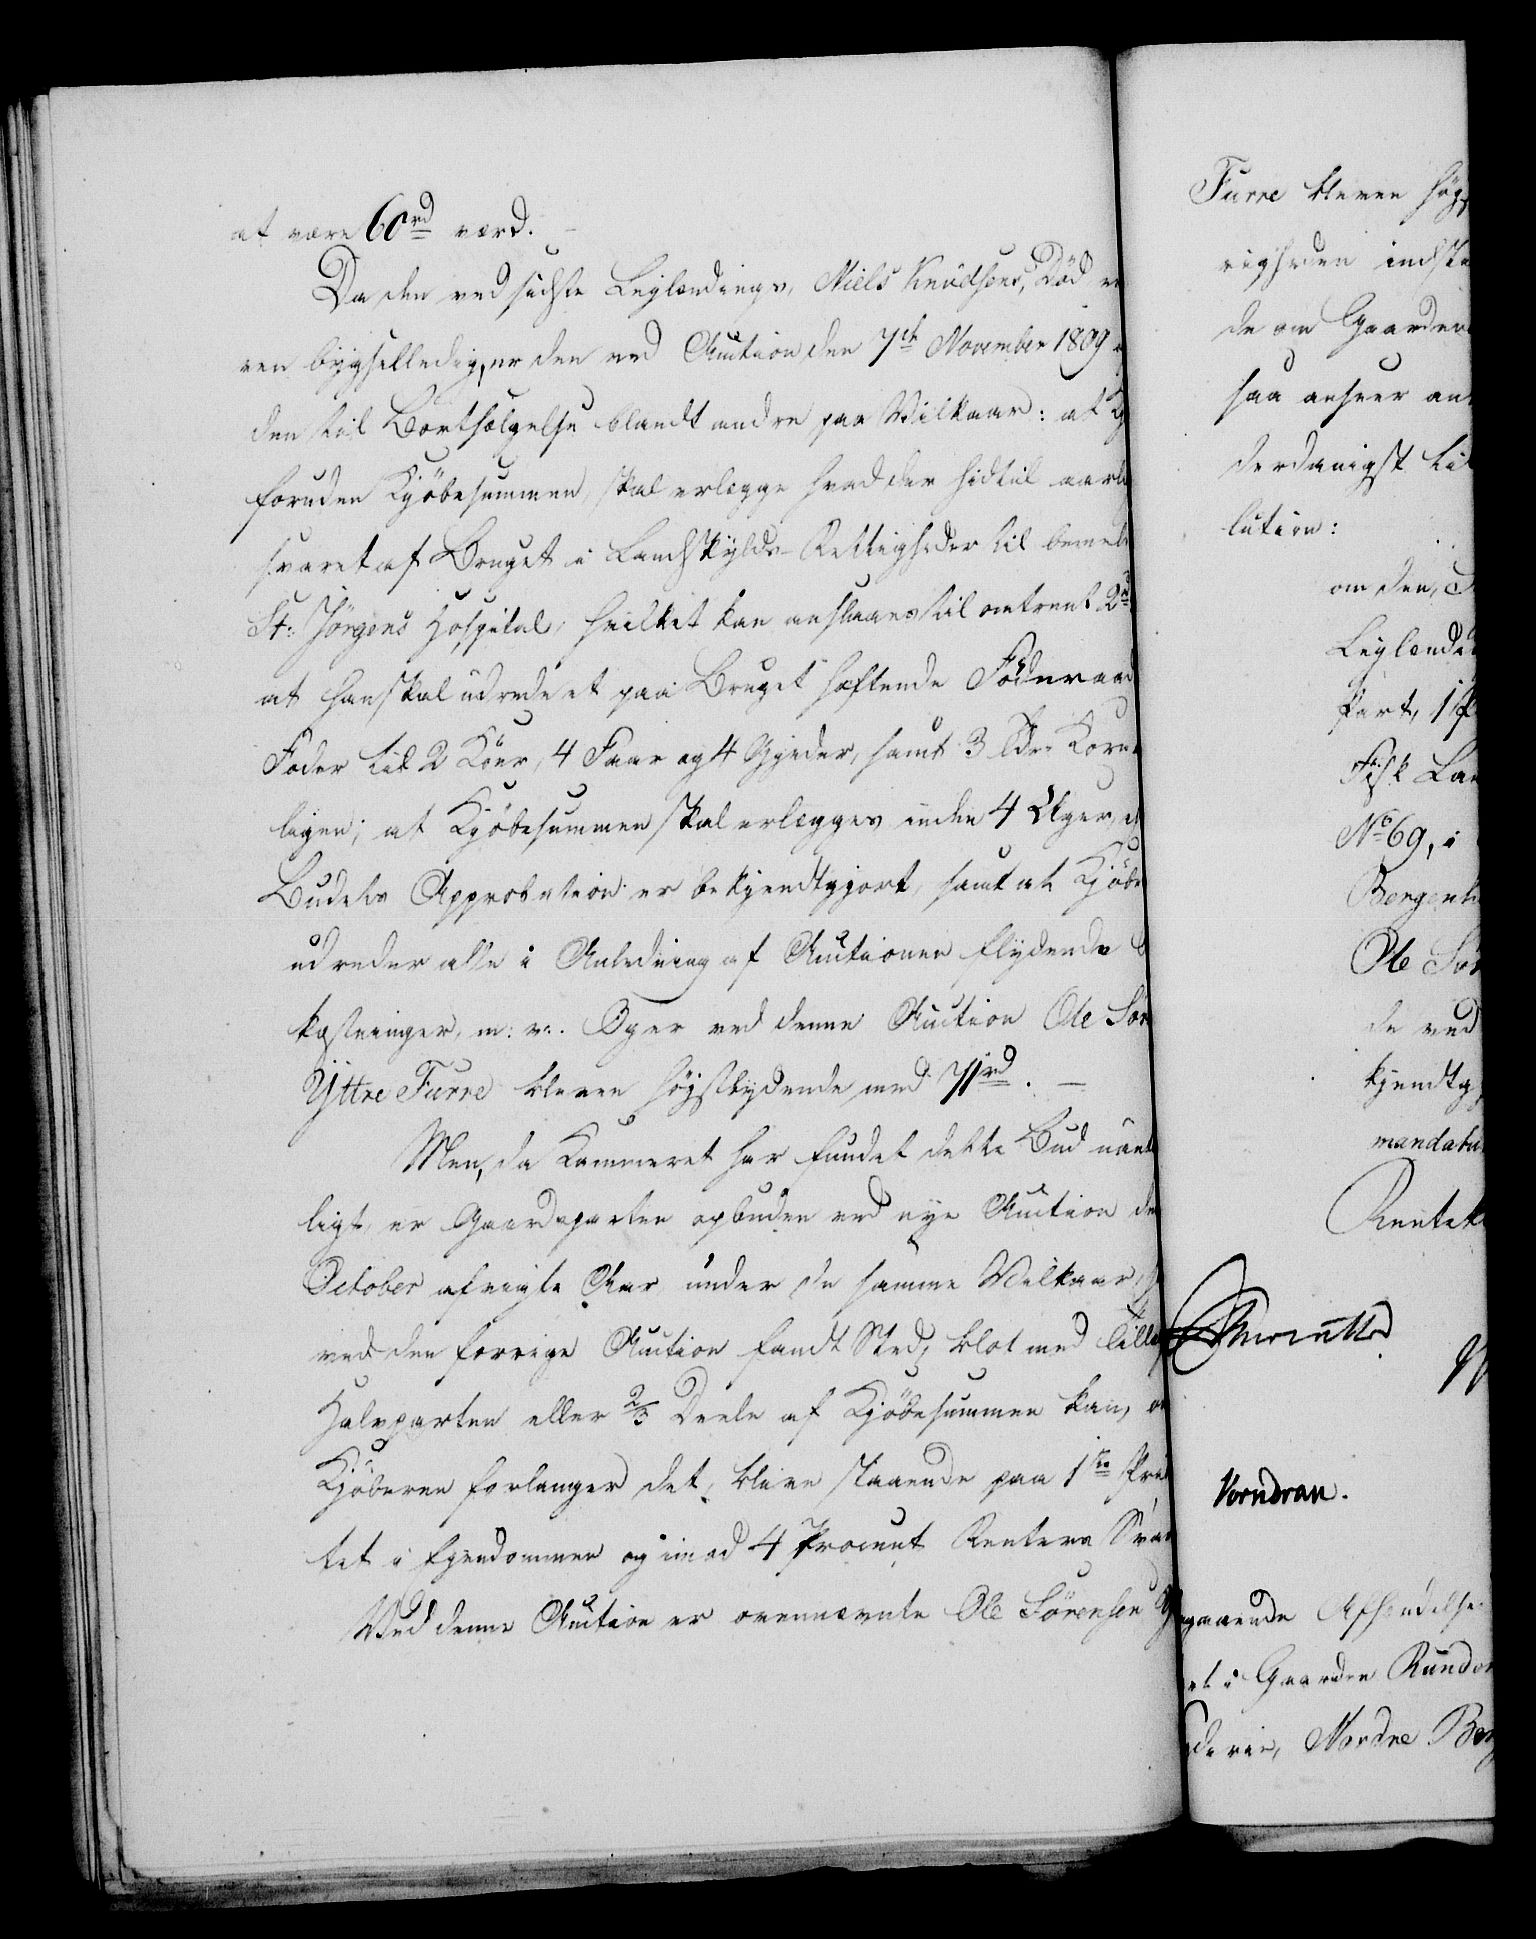 at være 60 rd værd. –
Da den ved sidste Leylændings, Niels Knudsens, Död
ven bygselledig, er den ved Auction den 7de November 1809
den til Bortsælgelse blandt andre paa Vilkaar: at
foruden Kjöbesummen, skal erlægge hvad der hidtil aarl
svaret af Bruget i Landskylds-Rettigheder til bemel
St: Jörgens Hospital, hvilket kan anslaaes til omtrent 2
at han skal udrede et paa Bruget hæftende Föderaad
Foder til 2 Köer, 4 Faar og 4 Gjeder, samt 3 Tdr Korn
ligen; at Kjöbesummen skal erlægges inden 4 Uger, e
Budets Approbation er bekjendtgjort, samt at Kjöbe
udreder alle i Anledning af Auctionen flydende
kostninger, m: v:. Og er ved denne Auction Ole Sör
Yttre Furre bleven höjstbydende med 71 rd. –
Men, da Kammeret har fundet dette Bud uant
ligt, er Gaardparten opbuden ved nye Auction de
October afvigte Aar, under de samme Vilkaar,
ved den forrige Auction fandt Sted, blot med Tillæ
Halvparten eller 2/3 Deele af Kjöbesummen kan, o
Kjöberen forlanger det, blive staaende paa 1ste Prio
tet i Ejendommen og imod 4 Procent Renters Svar
Ved denne Auction er ovennævnte Ole Sörensen
Furre bleven höjs
righeden indst
de om Gaarden
saa anseer an
derdanigst til
lution:
om den,
Leylænd
part, 1 P
Fisk Lan
No 69, i
Bergenh
Ole Sör
de ved
kjendtg
mandatu
Rentek
Vorndran.
gaaende Afhændelse
et i Gaarden Rundo
derie, Nordre Berg